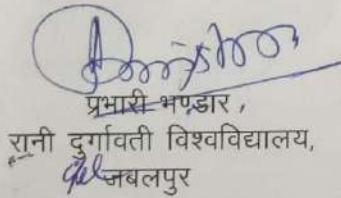 प्रभारी भण्डार,
रानी दुर्गावती विश्वविद्यालय,
जबलपुर